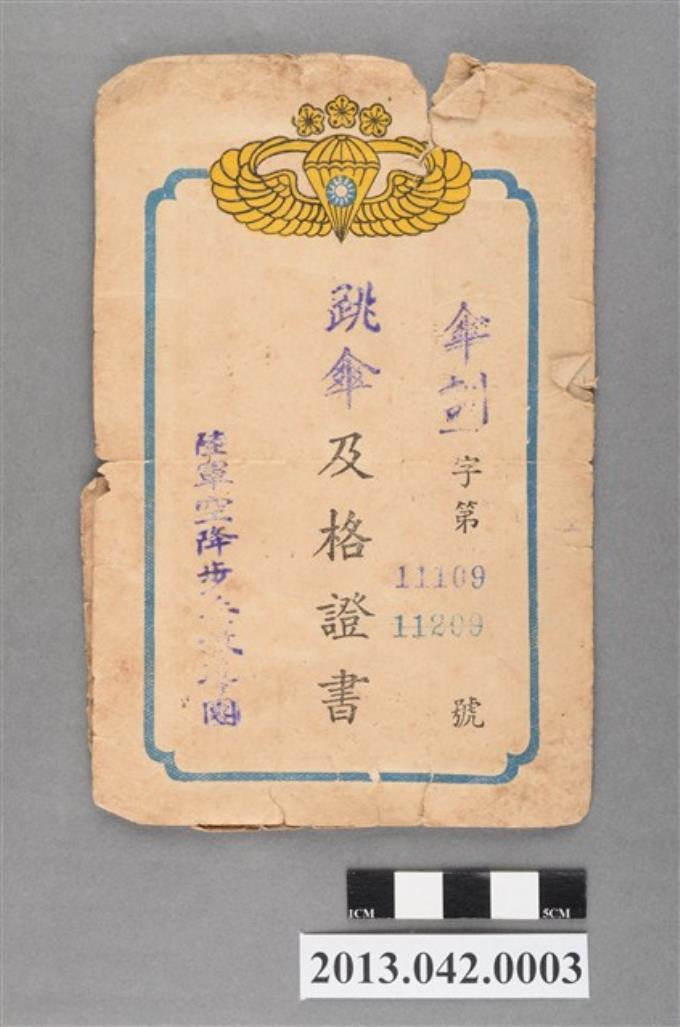 傘訓字第
11109
11209
號
跳傘及格證書
陸軍空降步兵教導團
1CM
5CM
2013.042.0003